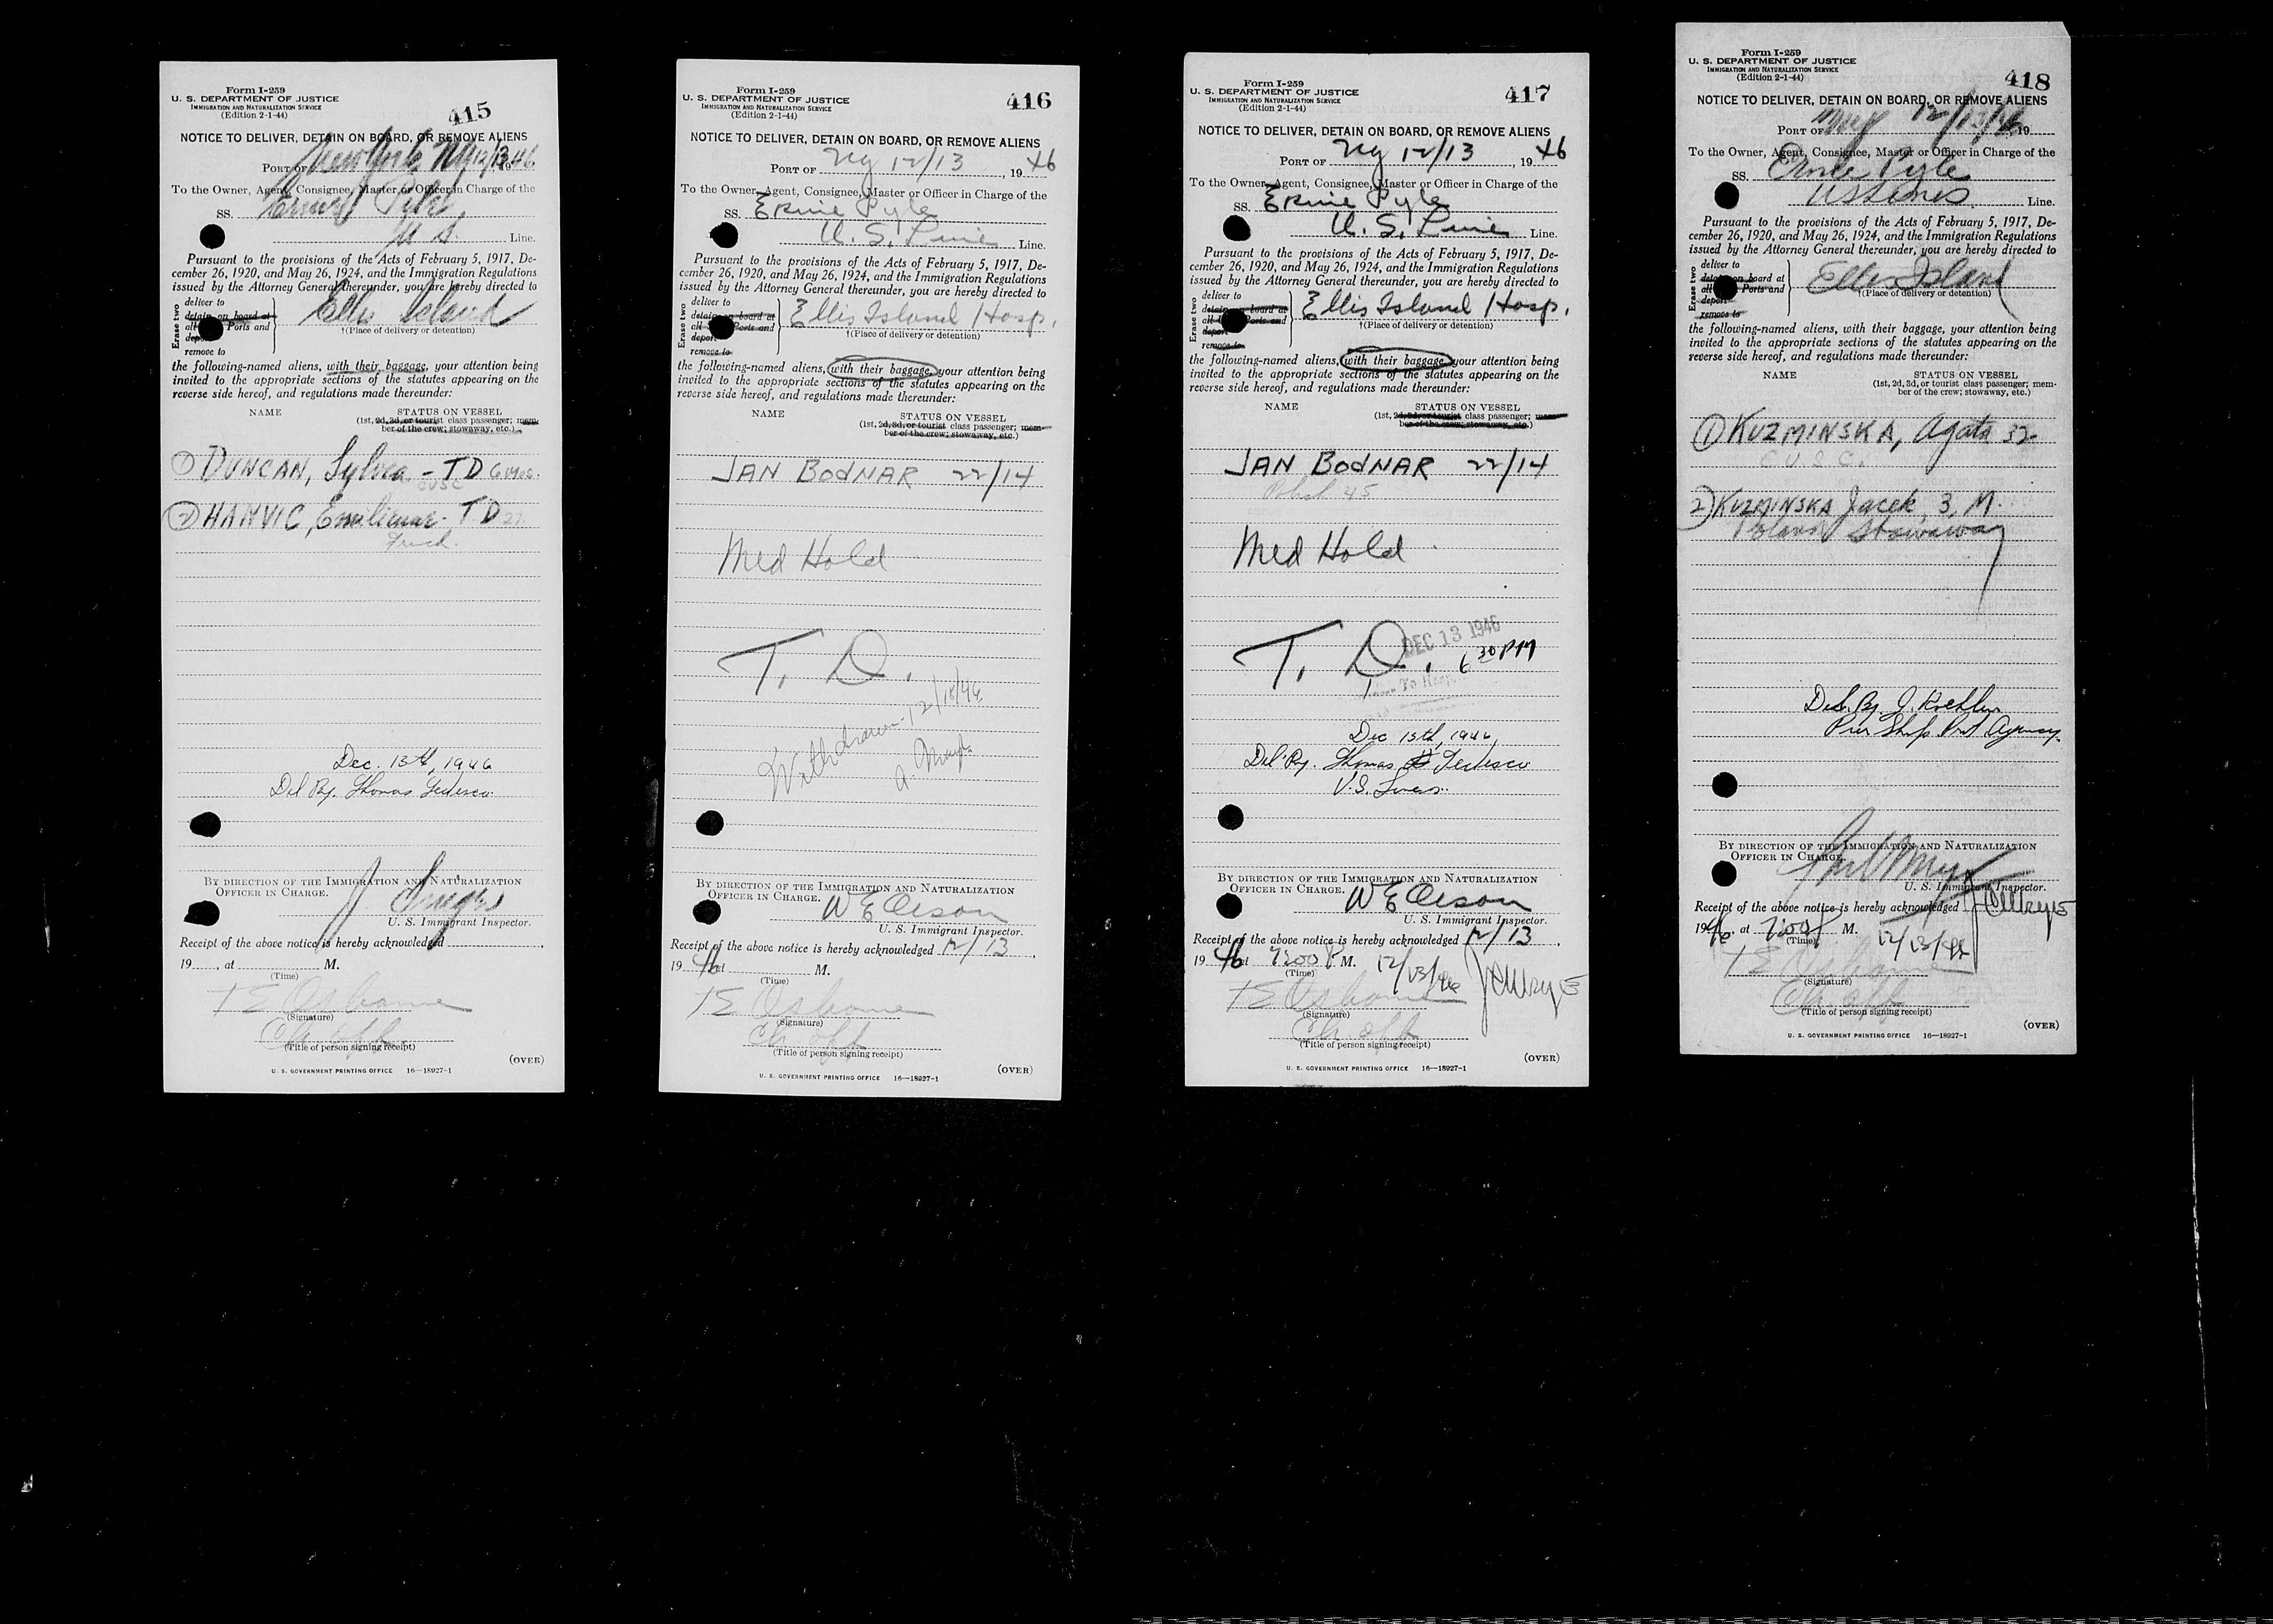 Form I-259
U. S. DEPARTMENT OF JUSTICE
IMMIGRATION AND NATURALIZATION SERVICE
(Edition 2-1-44)
415
NOTICE TO DELIVER, DETAIN ON BOARD, OR REMOVE ALIENS
PORT OF New York, NY 12/13 1946
To the Owner, Agent, Consignee, Master or Officer in Charge of the
SS. Ernest Pyle
U S. Line.
Pursuant to the provisions of the Acts of February 5, 1917, De-
cember 26, 1920, and May 26, 1924, and the Immigration Regulations
issued by the Attorney General thereunder, you are hereby directed to
Erase two
deliver to
detain on board at
all Ports and
remove to
Ellis Island
†(Place of delivery or detention)
the following-named aliens, with their baggage, your attention being
invited to the appropriate sections of the statutes appearing on the
reverse side hereof, and regulations made thereunder:
NAME STATUS ON VESSEL
(1st, 2d, 3d, or tourist class passenger; mem-
ber of the crew; stowaway, etc.)
① DUNCAN, Sylvia - TD
CUSC
② HAMVIC, - TD 27
Dec. 13th, 1946
Del By. Thomas Tedesco
BY DIRECTION OF THE IMMIGRATION AND NATURALIZATION
OFFICER IN CHARGE.
U. S. Immigrant Inspector.
Receipt of the above notice is hereby acknowledged
19 , at M.
(Time)
T E Osborne
(Signature)
Ch. off.
(Title of person signing receipt)
(OVER)
U. S. GOVERNMENT PRINTING OFFICE 16—18927-1
Form I-259
U. S. DEPARTMENT OF JUSTICE
IMMIGRATION AND NATURALIZATION SERVICE
(Edition 2-1-44)
416
NOTICE TO DELIVER, DETAIN ON BOARD, OR REMOVE ALIENS
PORT OF Ny 12/13, 1946
To the Owner, Agent, Consignee, Master or Officer in Charge of the
SS. Ernie Pyle
U. S. Lines Line.
Pursuant to the provisions of the Acts of February 5, 1917, De-
cember 26, 1920, and May 26, 1924, and the Immigration Regulations
issued by the Attorney General thereunder, you are hereby directed to
Erase two
deliver to
detain on board at
Ports and
deport
remove to
Ellis Island Hosp.
†(Place of delivery or detention)
the following-named aliens, with their baggage, your attention being
invited to the appropriate sections of the statutes appearing on the
reverse side hereof, and regulations made thereunder:
NAME STATUS ON VESSEL
(1st, 2d, 3d, or tourist class passenger; mem-
ber of the crew; stowaway, etc.)
JAN BODNAR 22/14
Med Hold
T. D.
Withdrawn 12/18/46
BY DIRECTION OF THE IMMIGRATION AND NATURALIZATION
OFFICER IN CHARGE.
W E Olson
U. S. Immigrant Inspector.
Receipt of the above notice is hereby acknowledged 12/13,
1946 at M.
(Time)
T E Osborne
(Signature)
Ch off
(Title of person signing receipt)
(OVER)
U. S. GOVERNMENT PRINTING OFFICE 16—18927-1
Form I-259
U. S. DEPARTMENT OF JUSTICE
IMMIGRATION AND NATURALIZATION SERVICE
(Edition 2-1-44)
417
NOTICE TO DELIVER, DETAIN ON BOARD, OR REMOVE ALIENS
PORT OF Ny 12/13, 1946
To the Owner, Agent, Consignee, Master or Officer in Charge of the
SS. Ernie Pyle
U. S. Lines Line.
Pursuant to the provisions of the Acts of February 5, 1917, De-
cember 26, 1920, and May 26, 1924, and the Immigration Regulations
issued by the Attorney General thereunder, you are hereby directed to
Erase two
deliver to
detain on board at
Ports and
deport
remove to
Ellis Island Hosp.
†(Place of delivery or detention)
the following-named aliens, with their baggage, your attention being
invited to the appropriate sections of the statutes appearing on the
reverse side hereof, and regulations made thereunder:
NAME STATUS ON VESSEL
(1st, 2d, 3d, or tourist class passenger; mem-
ber of the crew; stowaway, etc.)
JAN BODNAR 22/14
45
Med Hold
DEC 13 1946
T. D. 6 30 PM
To Hosp.
Dec 13th, 1946,
Del By. Thomas Tedesco
U.S. Lines.
BY DIRECTION OF THE IMMIGRATION AND NATURALIZATION
OFFICER IN CHARGE.
W E Olson
U. S. Immigrant Inspector.
Receipt of the above notice is hereby acknowledged 12/13,
1946 at 7:00 P M. 12/13/46
(Time)
T E Osborne
(Signature)
Ch off
(Title of person signing receipt)
(OVER)
U. S. GOVERNMENT PRINTING OFFICE 16—18927-1
Form I-259
U. S. DEPARTMENT OF JUSTICE
IMMIGRATION AND NATURALIZATION SERVICE
(Edition 2-1-44)
418
NOTICE TO DELIVER, DETAIN ON BOARD, OR REMOVE ALIENS
PORT OF NY 12/13/46 19
To the Owner, Agent, Consignee, Master or Officer in Charge of the
SS. Ernie Pyle
US Lines Line.
Pursuant to the provisions of the Acts of February 5, 1917, De-
cember 26, 1920, and May 26, 1924, and the Immigration Regulations
issued by the Attorney General thereunder, you are hereby directed to
Erase two
deliver to
detain on board at
all Ports and
deport
remove to
Ellis Island
†(Place of delivery or detention)
the following-named aliens, with their baggage, your attention being
invited to the appropriate sections of the statutes appearing on the
reverse side hereof, and regulations made thereunder:
NAME STATUS ON VESSEL
(1st, 2d, 3d, or tourist class passenger; mem-
ber of the crew; stowaway, etc.)
① KUZMINSKA, Agata 32
C U S C.
② KUZMINSKA Jacek, 3, M.
Poland Stowaway
Del. By. J. Koehler
Pier Ship Prot Agency.
BY DIRECTION OF THE IMMIGRATION AND NATURALIZATION
OFFICER IN CHARGE.
U. S. Immigrant Inspector.
Receipt of the above notice is hereby acknowledged
1946, at 7:00 P M. 12/13/46
(Time)
T E Osborne
(Signature)
Ch. off
(Title of person signing receipt)
(OVER)
U. S. GOVERNMENT PRINTING OFFICE 16—18927-1